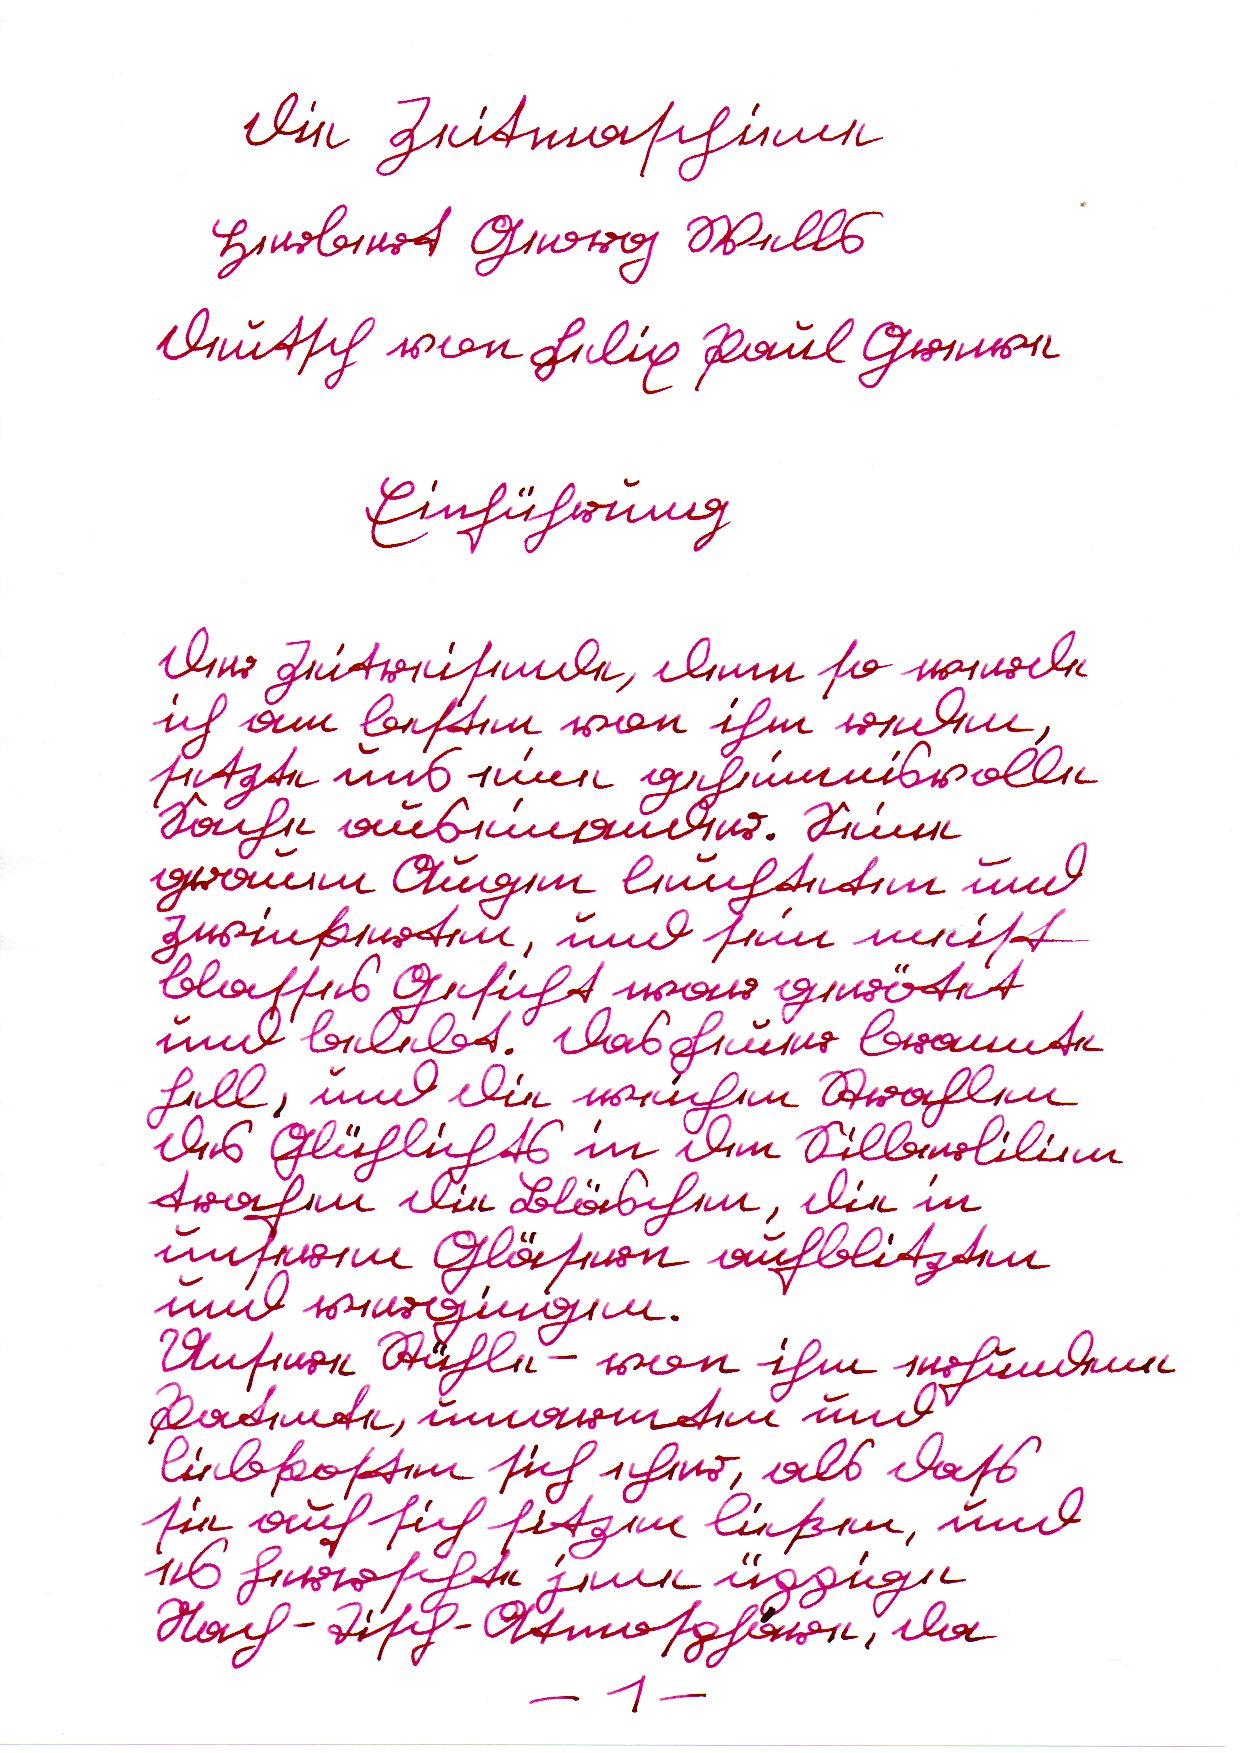 Die Zeitmaschine
Herbert Georg Wells
Deutsch von Felix Paul Greve
Einführung
Der Zeitreisende, denn so werde
ich am besten von ihm reden,
setzte uns eine geheimnisvolle
Sache auseinander. Seine
grauen Augen leuchteten und
zwinkerten, und sein meist
blasses Gesicht war gerötet
und belebt. Das Feuer brannte
hell, und die weichen Strahlen
des Glühlichts in den Silberlilien
trafen die Bläschen, die in
unseren Gläsern aufblitzten
und vergingen.
Unsere Stühle – von ihm erfundene
Patente, umarmten und
liebkosten sich eher, als dass
sie auf sich sitzen ließen, und
es herrschte jene üppige
Nach-Tisch-Atmosphäre, da
– 1 –